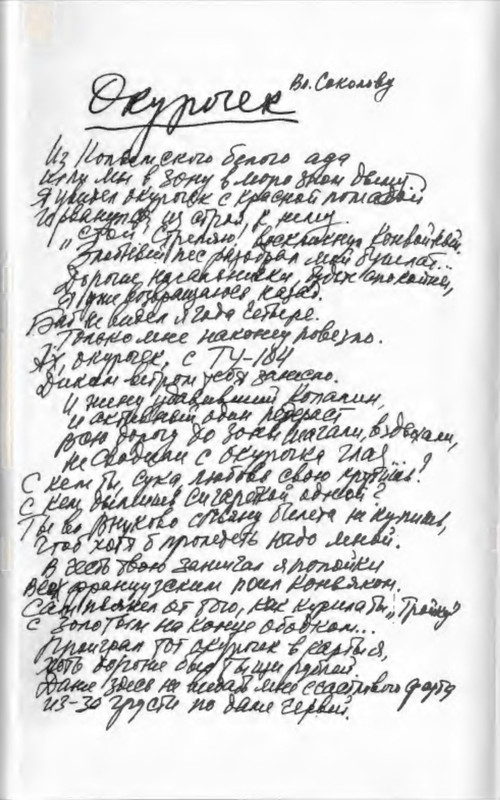 Окурочек
Вл. Соколову
Из Колымского белого ада
шли мы в зону в морозном дыму.
Я увидел окурочек с красной помадой
и рванулся из строя к нему.
"Стой! Стреляю!" воскликнул конвойный.
Злобный пес разодрал мой бушлат...
Дорогие начальнички, будьте спокойны,
Я уже возвращаюсь назад.
Баб не видел я года четыре.
Только мне наконец повезло.
Ах, окурочек, с ТУ-104
Диким ветром тебя занесло.
И жену удавивший Копалин,
и активный один педераст
всю дорогу до зоны шагали, вздыхали,
не сводили с окурочка глаз...
С кем ты, сука, любовь свою крутишь?
С кем дымишь сигареткой одной?
Ты во Внуково спьяну билета не купишь,
Чтоб хотя б пролететь надо мной.
В честь твою зажигал я попойки
Всех французским поил коньяком,
Сам пьянел от того, как курила ты "Тройку"
с золотым на конце ободком...
Проиграл тот окурочек в карты я,
хоть дороже был тыщи рублей.
Даже здесь не видать мне счастливого фарту
из-за грусти по даме червей.